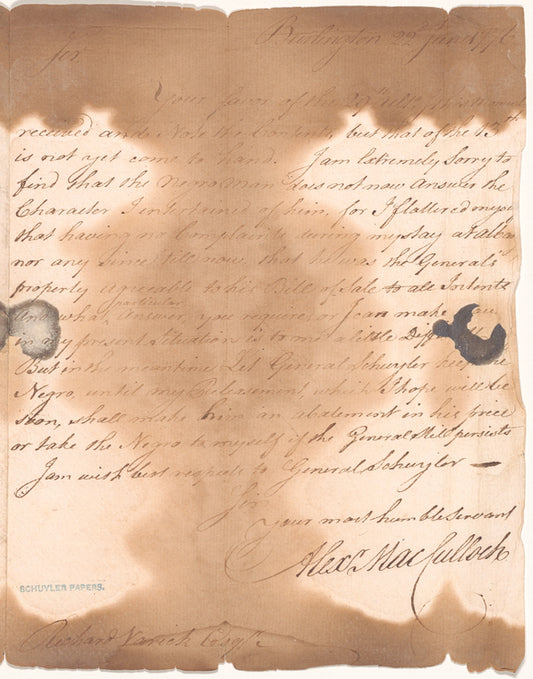 Burlington 22d June 1776
Sir
Your favor of the 29th Ult. I this moment
received and Note the Contents, but that of the 15th
is not yet come to hand. I am Extremely Sorry to
find that the Negro man does not now Answer the
Character I entertained of him, for I flattered myself
that having no Complaints during my stay at Albany
nor any Since till now, that he was the General's
property agreeable to his Bill of Sale to all Intents
And what particular Answer you require, or I can make you
in my present Situation is to me a little
But in the meantime Let General Schuyler keep the
Negro, until my Releasement, which I hope will be
Soon, shall make him an abatement in his price
or take the Negro to myself if the General Still persists
I am with best respects to General Schuyler —
Sir
your most humble Servant
Alexr. MacCulloch
SCHUYLER PAPERS.
Richard Varick Esqr.